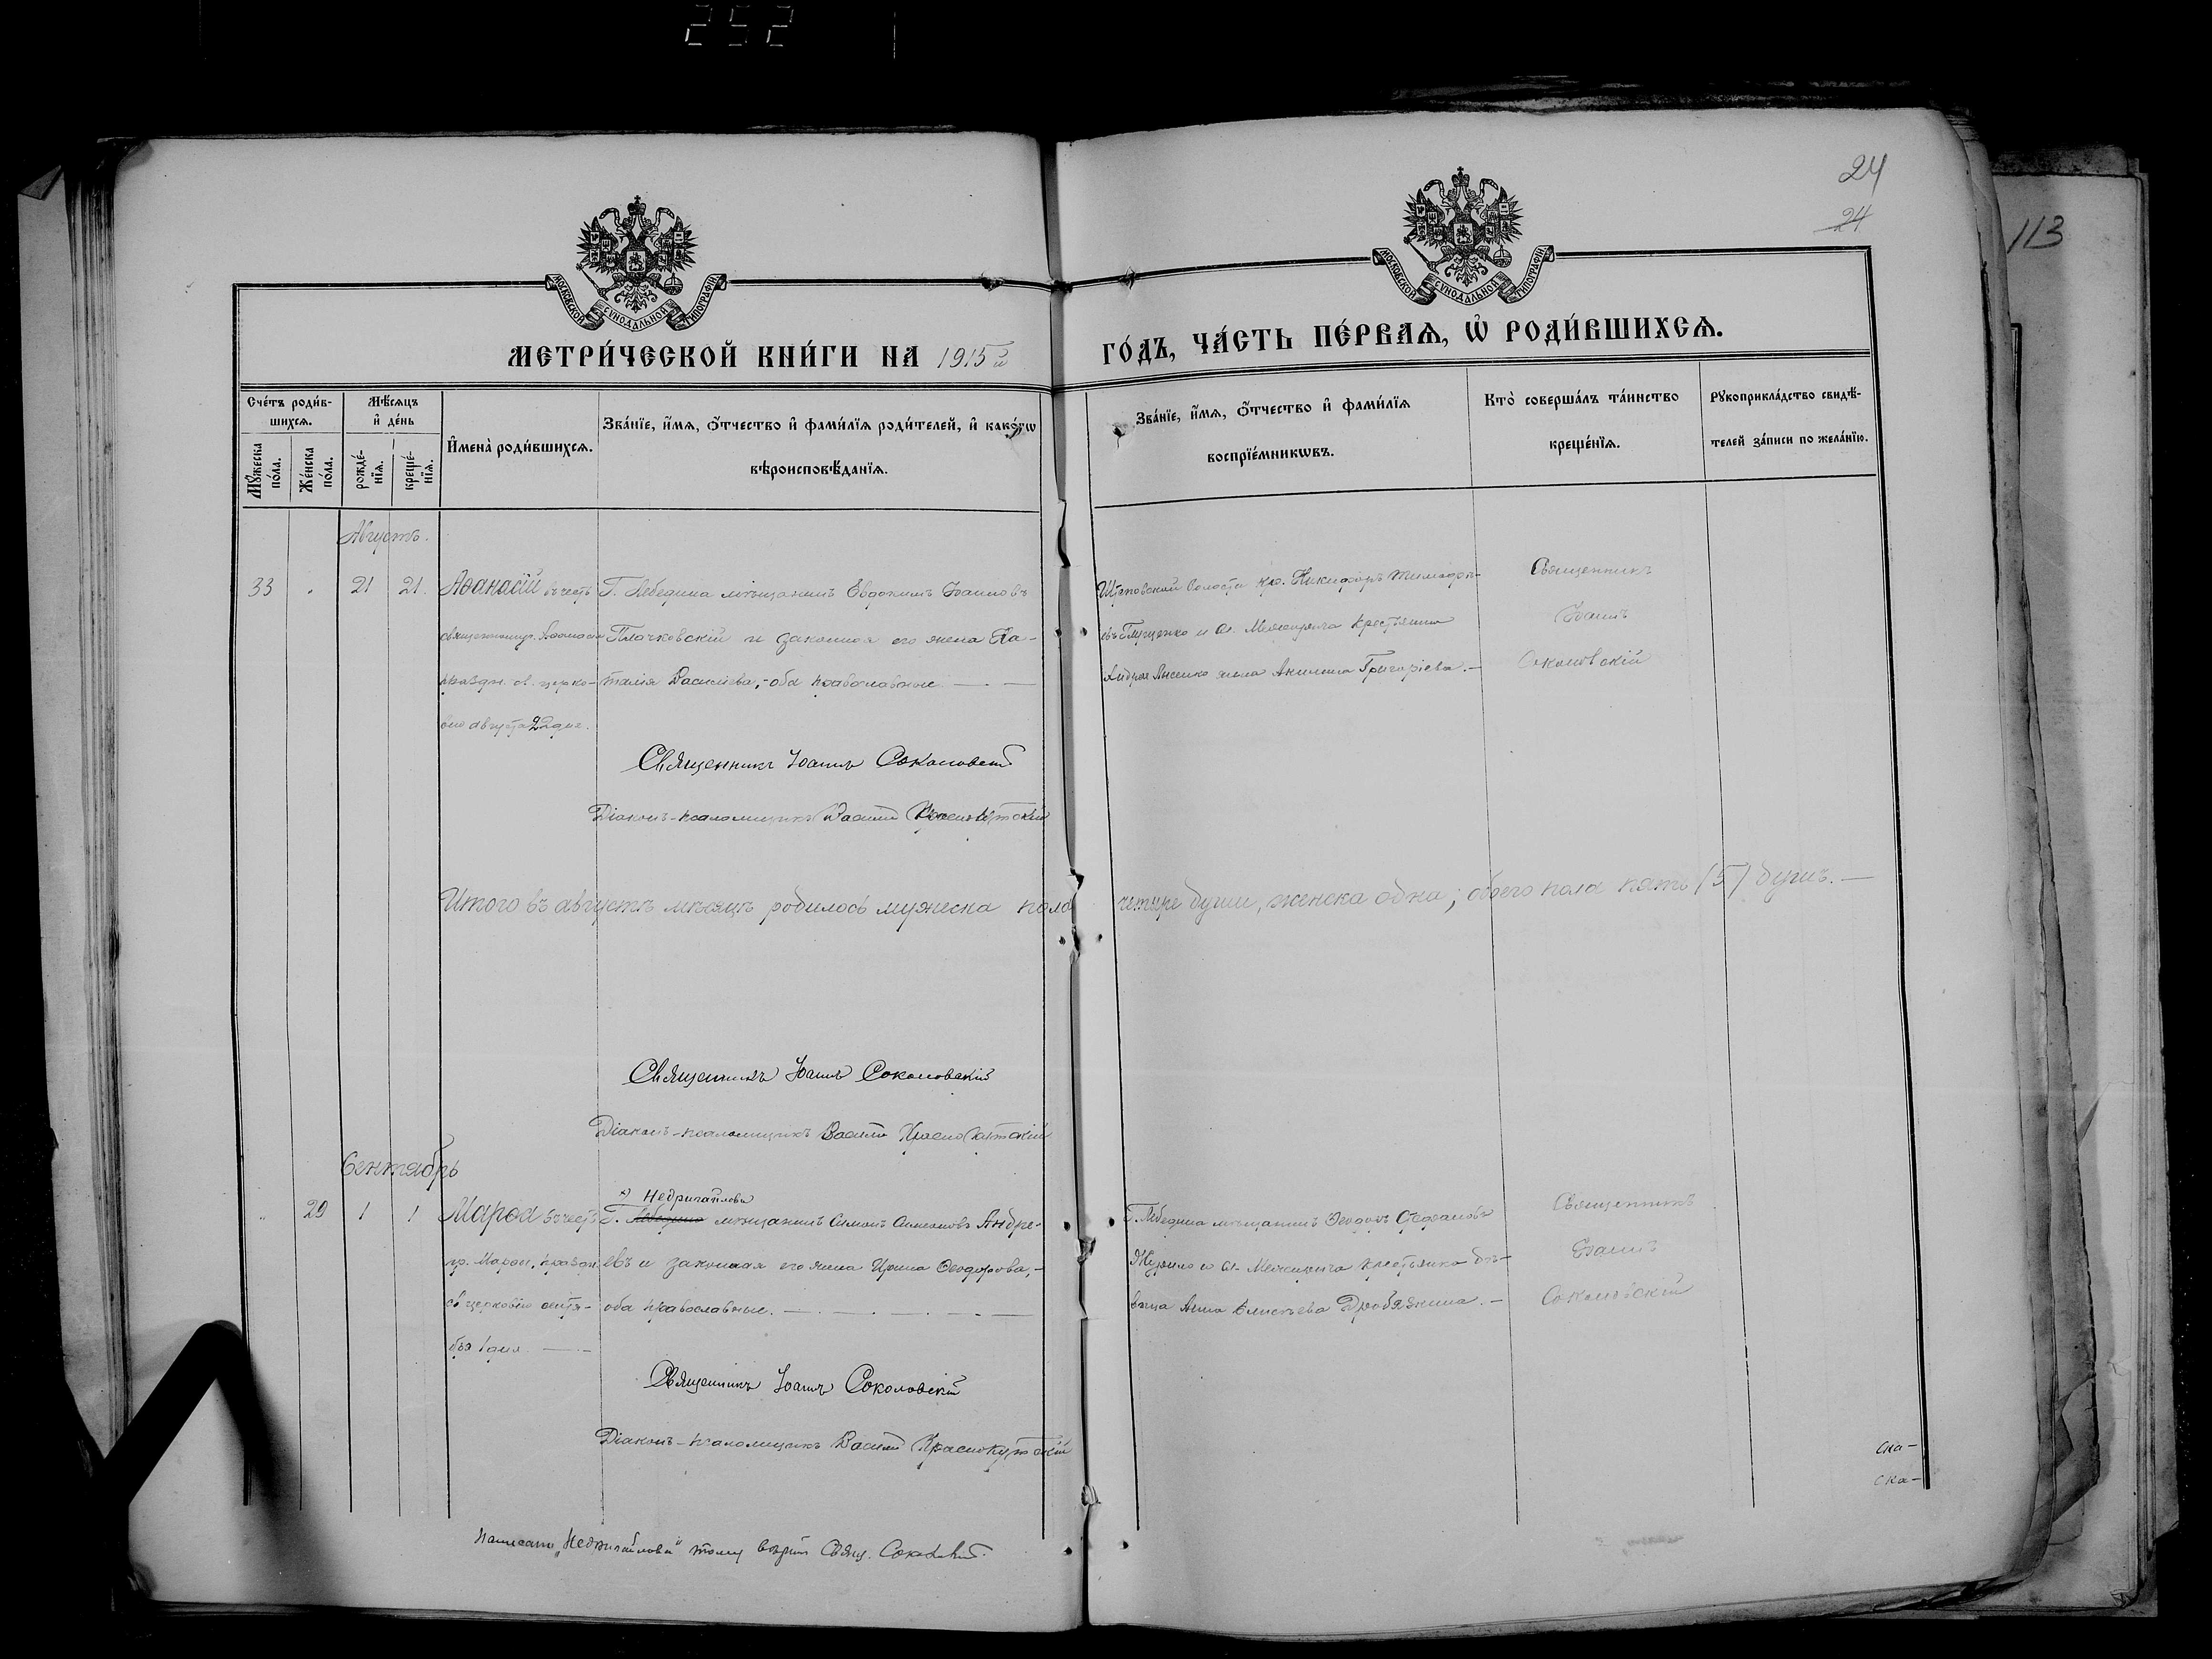 252
24
24
113
МОСКОВСКОЙ СѴНОДАЛЬНОЙ ТИПОГРАФІИ
МОСКОВСКОЙ СѴНОДАЛЬНОЙ ТИПОГРАФІИ
МЕТРИ́ЧЕСКОЙ КНИ́ГИ НА 1915й
ГО́ДЪ, ЧА́СТЬ ПЕ́РВАѦ, Ѡ҆ РОДИ́ВШИХСѦ.
Сче́тъ роди́вшихсѧ.
Мꙋ́жеска по́ла.
Же́нска по́ла.
Мѣ́сѧцъ и҆ де́нь
рожде́нїѧ.
креще́нїѧ.
И҆мена̀ роди́вшихсѧ.
Зва́нїе, и҆́мѧ, ѻ҆́тчество и҆ фами́лїѧ роди́телей, и҆ како́гѡ
вѣроисповѣ́данїѧ.
Зва́нїе, и҆́мѧ, ѻ҆́тчество и҆ фами́лїѧ
воспрїе́мникѡвъ.
Кто̀ соверша́лъ та́инство
креще́нїѧ.
Рꙋкоприкла́дство свидѣ́-
телей за́писи по жела́нїю.
Августъ.
33 " 21 21.
Аѳанасій въ честь
священномуч. Аѳанасія
праздн. св. церко-
вію августа 22 дня.
Г. Лебедина мѣщанинъ Евдокимъ Іоанновъ
Плачковскій и законная его жена На-
талія Васильева, - оба православные
Штеповской волости кр. Никифоръ Тимоѳѣ-
евъ Глущенко и сл. Межирича крестьянина
Андрея Лысенко жена Акилина Григоріева. -
Священникъ
Іоаннъ
Соколовскій
Священникъ Іоаннъ Соколовскій
Діаконъ-псаломщикъ Василій Краснокутскій
Итого въ августѣ мѣсяцѣ родилось мужеска пола четыре души, женска одна; обоего пола пять (5) душъ. —
Священникъ Іоаннъ Соколовскій
Діаконъ-псаломщикъ Василій Краснокутскій
Сентябрь
" 29 1 1
Марѳа въ честь
пр. Марѳы, праздн.
св церковію сентя-
бря 1 дня
х) Недригайлова
Г. Лебедина мѣщанинъ Симонъ Симеоновъ Андре-
евъ и законная его жена Ирина Ѳеодорова, -
оба православные.
Г. Лебедина мѣщанинъ Ѳеодоръ Стефановъ
Журило и сл. Межирича крестьянка дѣ-
вица Анна Елисѣева Дробязкина. -
Священникъ
Іоаннъ
Соколовскій
Священникъ Іоаннъ Соколовскій
Діаконъ-псаломщикъ Василій Краснокутскій
ска-
ска-
написано „Недригайлова" тому вѣрить Свящ. Соколовскій.